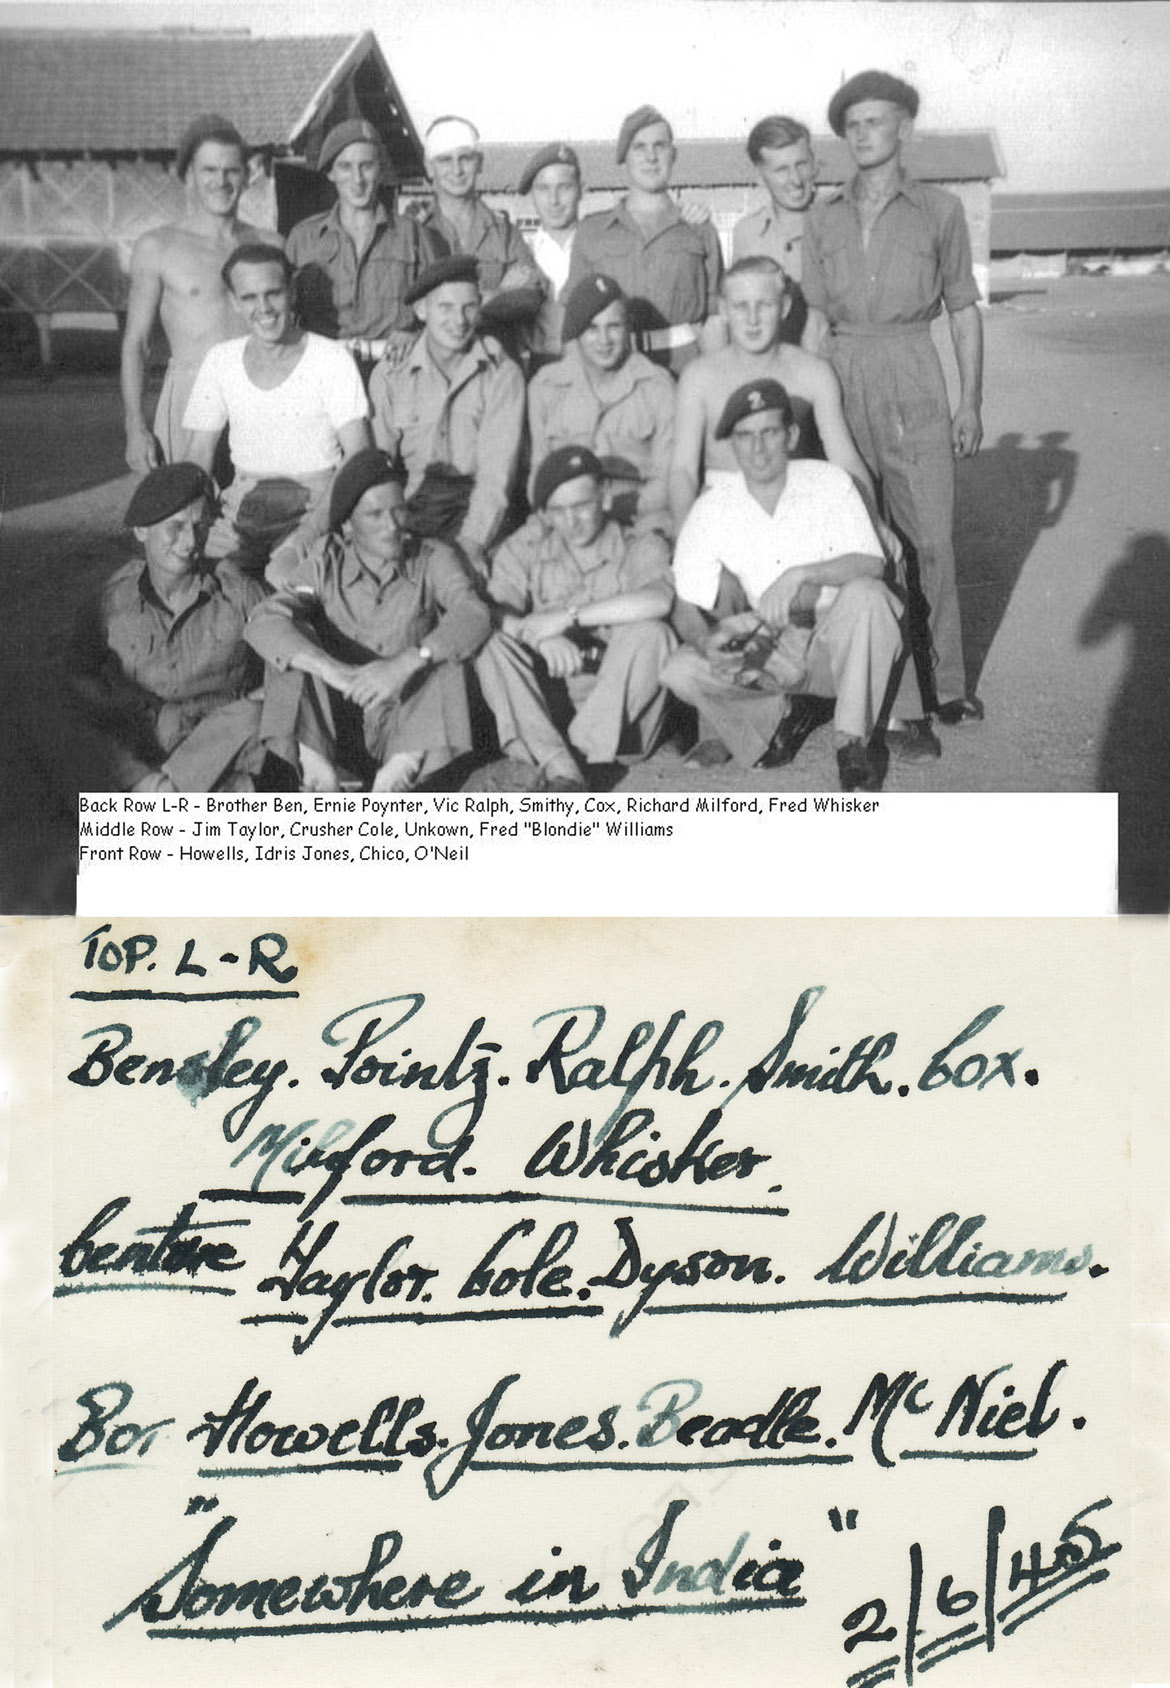 Back Row L-R - Brother Ben, Ernie Poynter, Vic Ralph, Smithy, Cox, Richard Milford, Fred Whisker
Middle Row - Jim Taylor, Crusher Cole, Unkown, Fred "Blondie" Williams
Front Row - Howells, Idris Jones, Chico, O'Neil
TOP. L-R
Bensley. Pointz. Ralph. Smith. Cox.
Milford. Whisker.
Centure Taylor. Cole. Dyson. Williams.
Bot Howells. Jones. Beadle. Mc Niel.
"Somewhere in India" 2/6/45